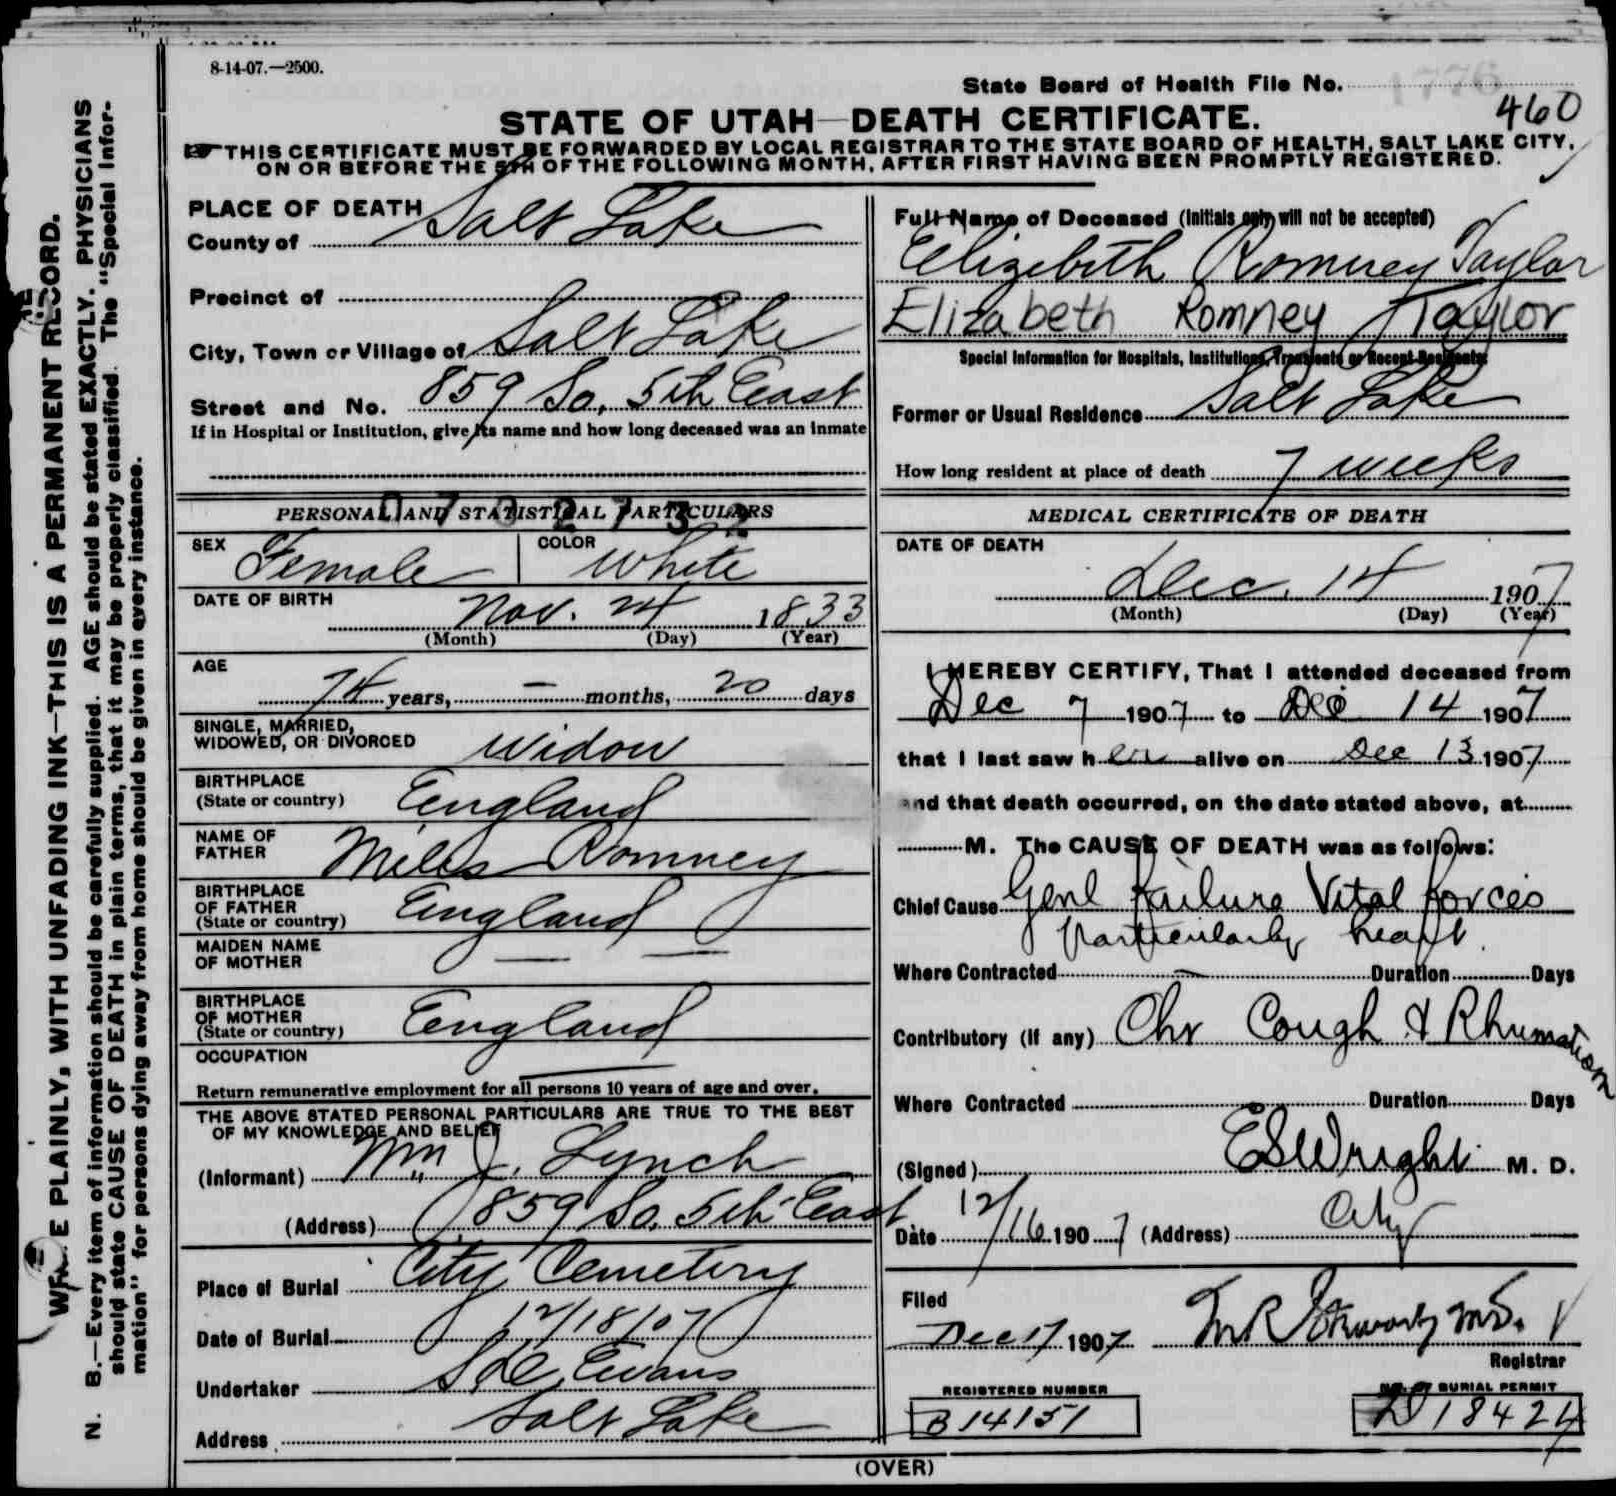 8-14-07.—2500.
State Board of Health File No. 1776
460
STATE OF UTAH—DEATH CERTIFICATE.
THIS CERTIFICATE MUST BE FORWARDED BY LOCAL REGISTRAR TO THE STATE BOARD OF HEALTH, SALT LAKE CITY,
ON OR BEFORE THE 5TH OF THE FOLLOWING MONTH, AFTER FIRST HAVING BEEN PROMPTLY REGISTERED.
WRITE PLAINLY, WITH UNFADING INK—THIS IS A PERMANENT RECORD.
N. B.—Every item of information should be carefully supplied. AGE should be stated EXACTLY. PHYSICIANS
should state CAUSE OF DEATH in plain terms, that it may be properly classified. The "Special Infor-
mation" for persons dying away from home should be given in every instance.
PLACE OF DEATH
County of Salt Lake
Precinct of
City, Town or Village of Salt Lake
Street and No. 859 So. 5th East
If in Hospital or Institution, give its name and how long deceased was an inmate
PERSONAL AND STATISTICAL PARTICULARS
SEX Female COLOR White
DATE OF BIRTH
Nov. 24 1833
(Month) (Day) (Year)
AGE
74 years, — months, 20 days
SINGLE, MARRIED,
WIDOWED, OR DIVORCED Widow
BIRTHPLACE
(State or country) England
NAME OF
FATHER Miles Romney
BIRTHPLACE
OF FATHER
(State or country) England
MAIDEN NAME
OF MOTHER — —
BIRTHPLACE
OF MOTHER
(State or country) England
OCCUPATION
Return remunerative employment for all persons 10 years of age and over.
THE ABOVE STATED PERSONAL PARTICULARS ARE TRUE TO THE BEST
OF MY KNOWLEDGE AND BELIEF
(Informant) Wm J. Lynch
(Address) 859 So. 5th East
Place of Burial City Cemetery
Date of Burial 12/18/07
Undertaker Evans
Address Salt Lake
Full Name of Deceased (Initials only will not be accepted)
Elizebeth Romney Taylor
Elizabeth Romney Taylor
Special Information for Hospitals, Institutions, Transients or Recent Residents
Former or Usual Residence Salt Lake
How long resident at place of death 7 weeks
MEDICAL CERTIFICATE OF DEATH
DATE OF DEATH
Dec. 14 1907
(Month) (Day) (Year)
I HEREBY CERTIFY, That I attended deceased from
Dec 7 1907 to Dec 14 1907
that I last saw her alive on Dec 13 1907
and that death occurred, on the date stated above, at
M. The CAUSE OF DEATH was as follows:
Chief Cause Genl failure Vital forces
particularly heart.
Where Contracted — Duration Days
Contributory (if any) Chr Cough & Rhumatism
Where Contracted Duration Days
(Signed) E S Wright M. D.
Date 12/16 1907 (Address) City
Filed
Dec 17 1907
Registrar
REGISTERED NUMBER
B 14151
NO. OF BURIAL PERMIT
D 18424
(OVER)